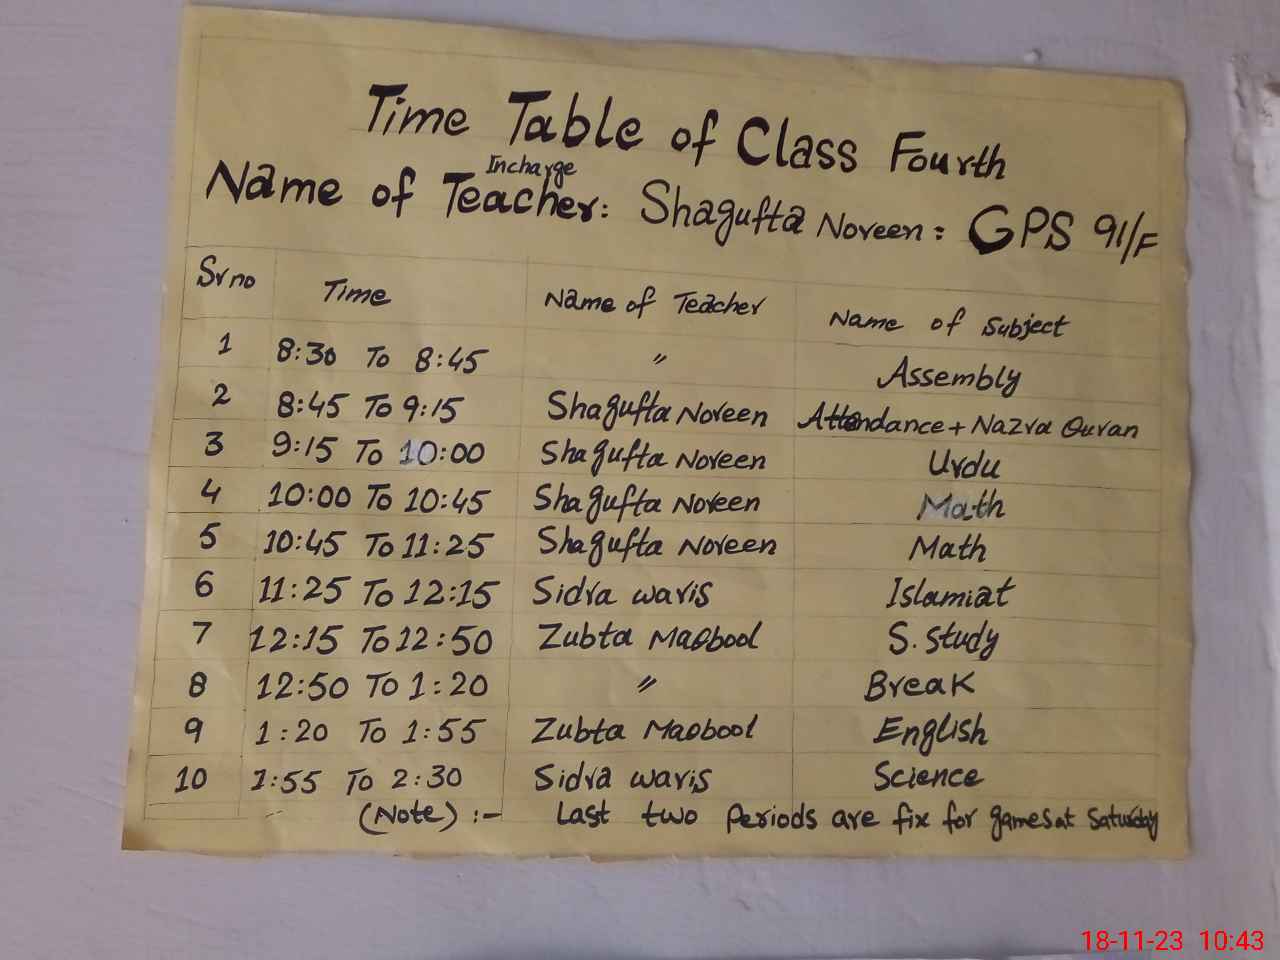 Time Table of Class Fourth
Incharge
Name of Teacher: Shagufta Noreen: GPS 91/F
Sr no Time Name of Teacher Name of Subject
1 8:30 To 8:45 " Assembly
2 8:45 To 9:15 Shagufta Noreen Attendance + Nazra Quran
3 9:15 To 10:00 Shagufta Noreen Urdu
4 10:00 To 10:45 Shagufta Noreen Math
5 10:45 To 11:25 Shagufta Noreen Math
6 11:25 To 12:15 Sidra waris Islamiat
7 12:15 To 12:50 Zubta Maqbool S.study
8 12:50 To 1:20 " Break
9 1:20 To 1:55 Zubta Maqbool English
10 1:55 To 2:30 Sidra waris Science
(Note) :- Last two Periods are fix for games at Saturday
18-11-23 10:43